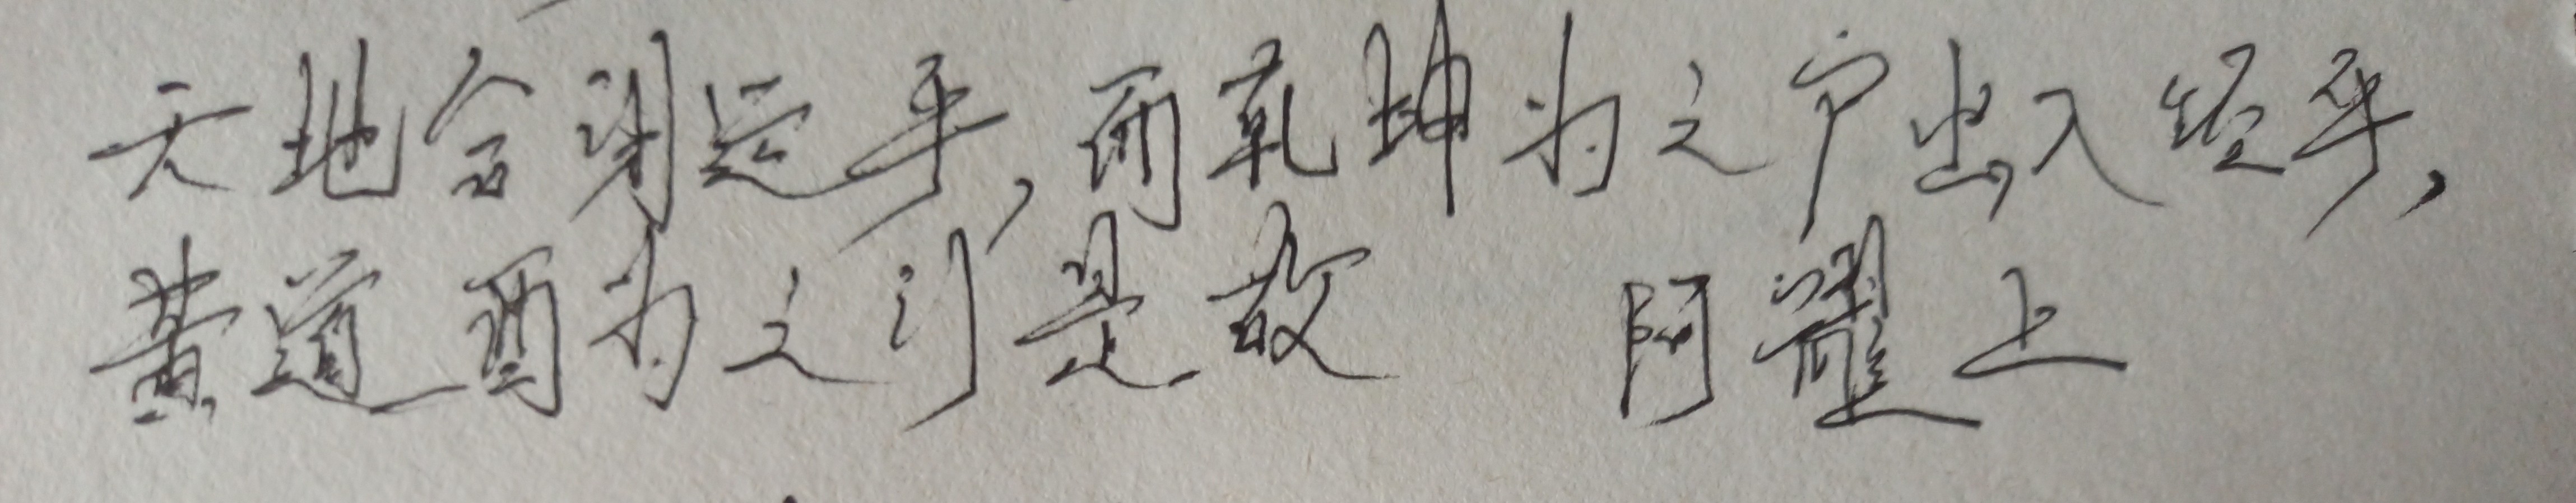 天地合闭运乎,而乾坤为之户出入经乎,
黄道酉为之门是故 阿耀上